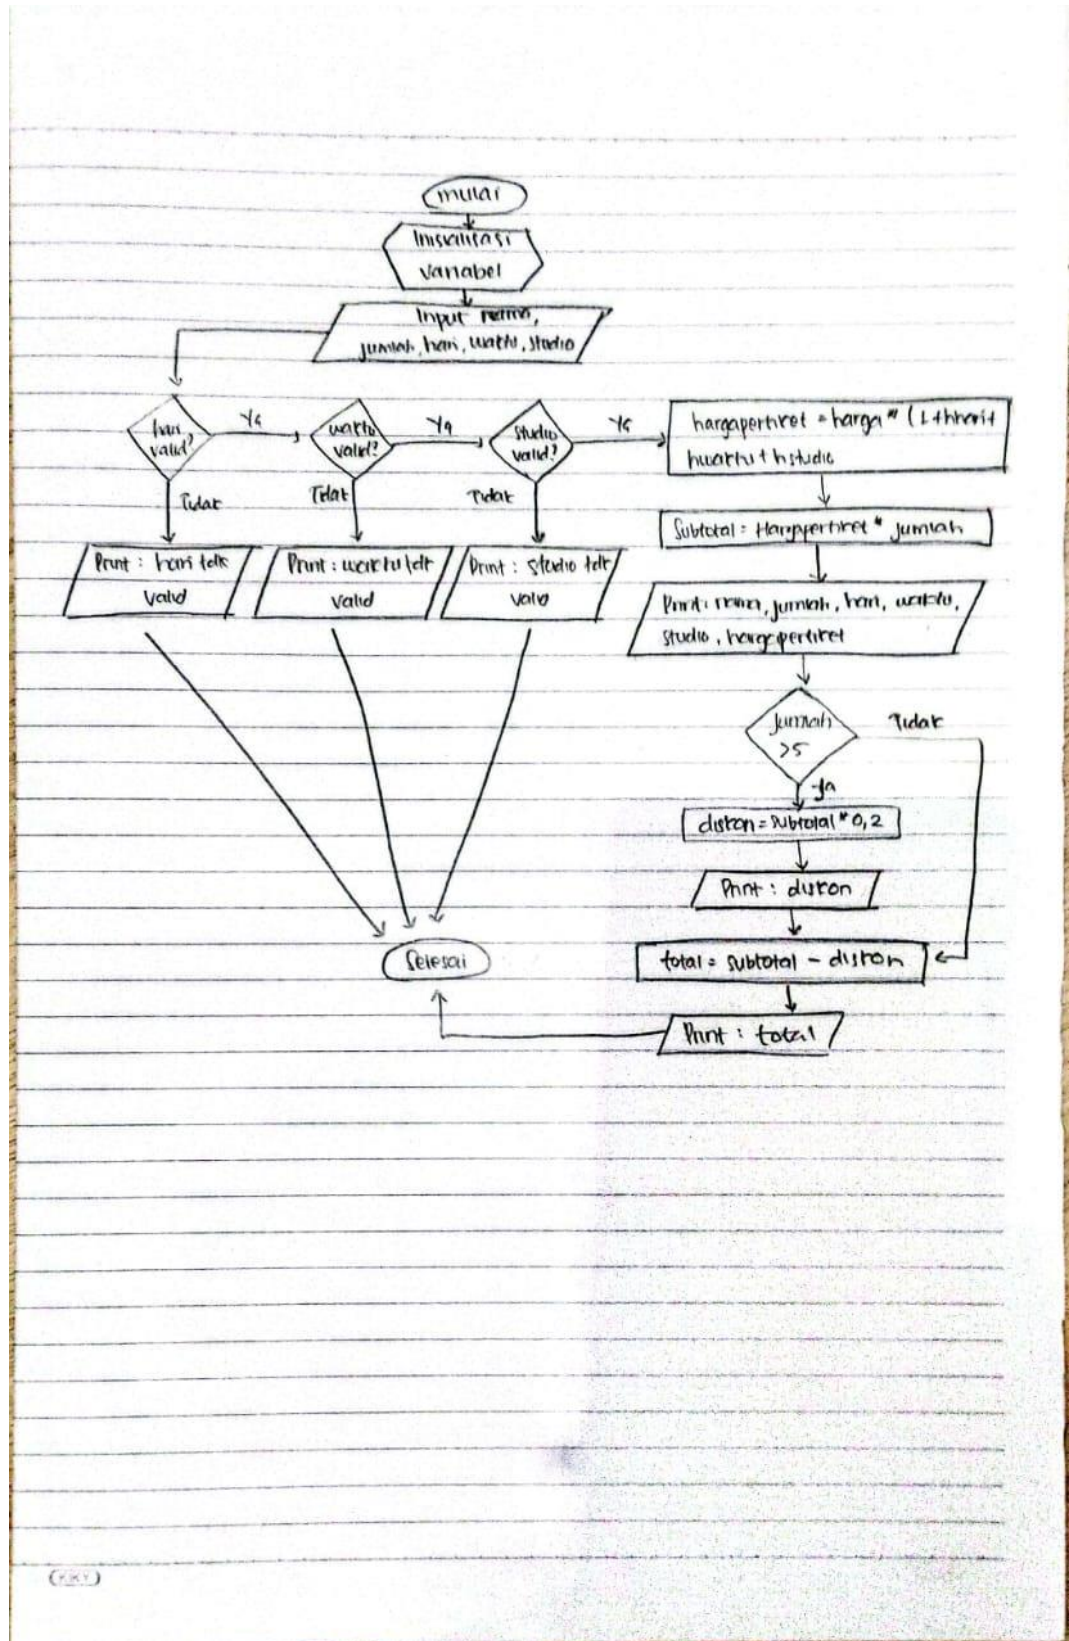 mulai
Inisialisasi
variabel
Input nama,
jumlah, hari, waktu, studio
hari
valid?
Ya
waktu
valid?
Ya
studio
valid?
Ya
hargapertiket = harga * (1+hhari+
hwaktu + hstudio
Tidak
Tidak
Tidak
Subtotal = Hargapertiket * jumlah
Print : hari tdk
valid
Print : waktu tdk
valid
Print : studio tdk
valid
Print : nama, jumlah, hari, waktu,
studio, hargapertiket
jumlah
>5
Tidak
ya
diskon = subtotal * 0,2
Print : diskon
Selesai
total = subtotal - diskon
Print : total
KKY